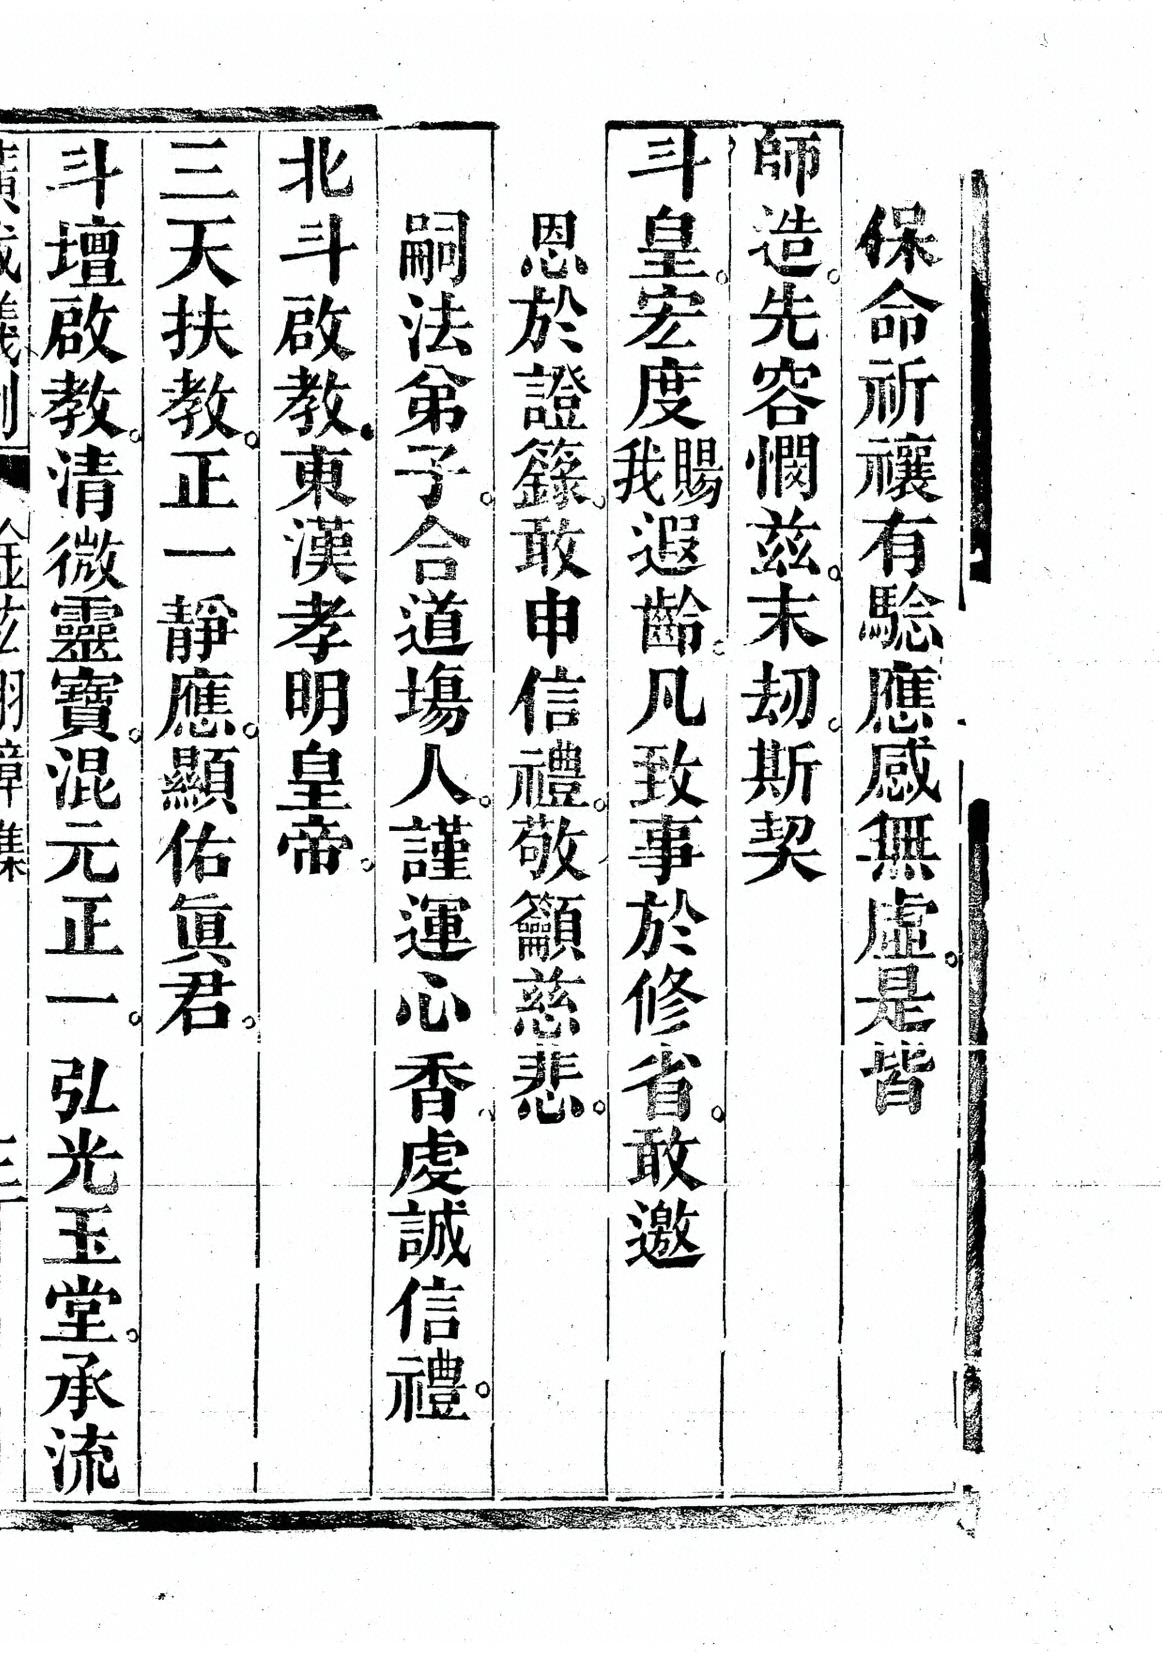 保命祈禳有驗應感無虛。是皆
師造。先容憫茲。末刧。斯契
斗皇。宏度賜我遐齡。凡致事於修省。敢邀
恩於證籙。敢申信禮。敬籲慈悲。
嗣法弟子。合道塲人。謹運心香。虔誠信禮。
北斗啟教。東漢孝明皇帝。
三天扶教。正一靜應。顯佑眞君。
斗壇啟教。清微靈寶。混元正一。弘光玉堂。承流
廣成儀制